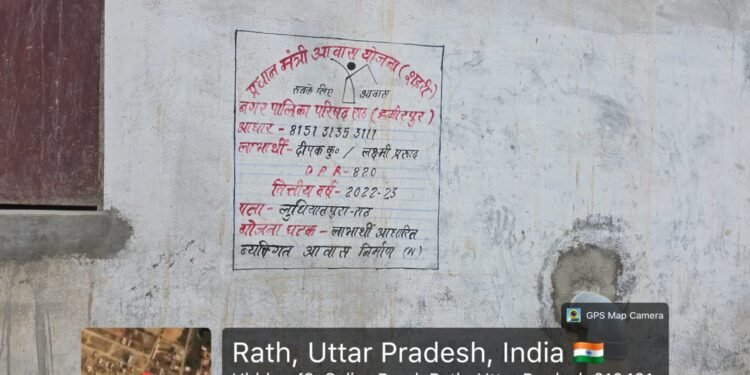 प्रधान मंत्री आवास योजना (शहरी)
सबके लिए आवास
नगर पालिका परिषद राठ (हमीरपुर)
आधार - 8151 3135 3111
लाभार्थी - दीपक कु० / लक्ष्मी प्रसाद
D P R - 820
वित्तीय वर्ष - 2022-23
पता - लुधियातपुरा-राठ
योजना घटक - लाभार्थी आधारित
व्यक्तिगत आवास निर्माण (N)
GPS Map Camera
Rath, Uttar Pradesh, India